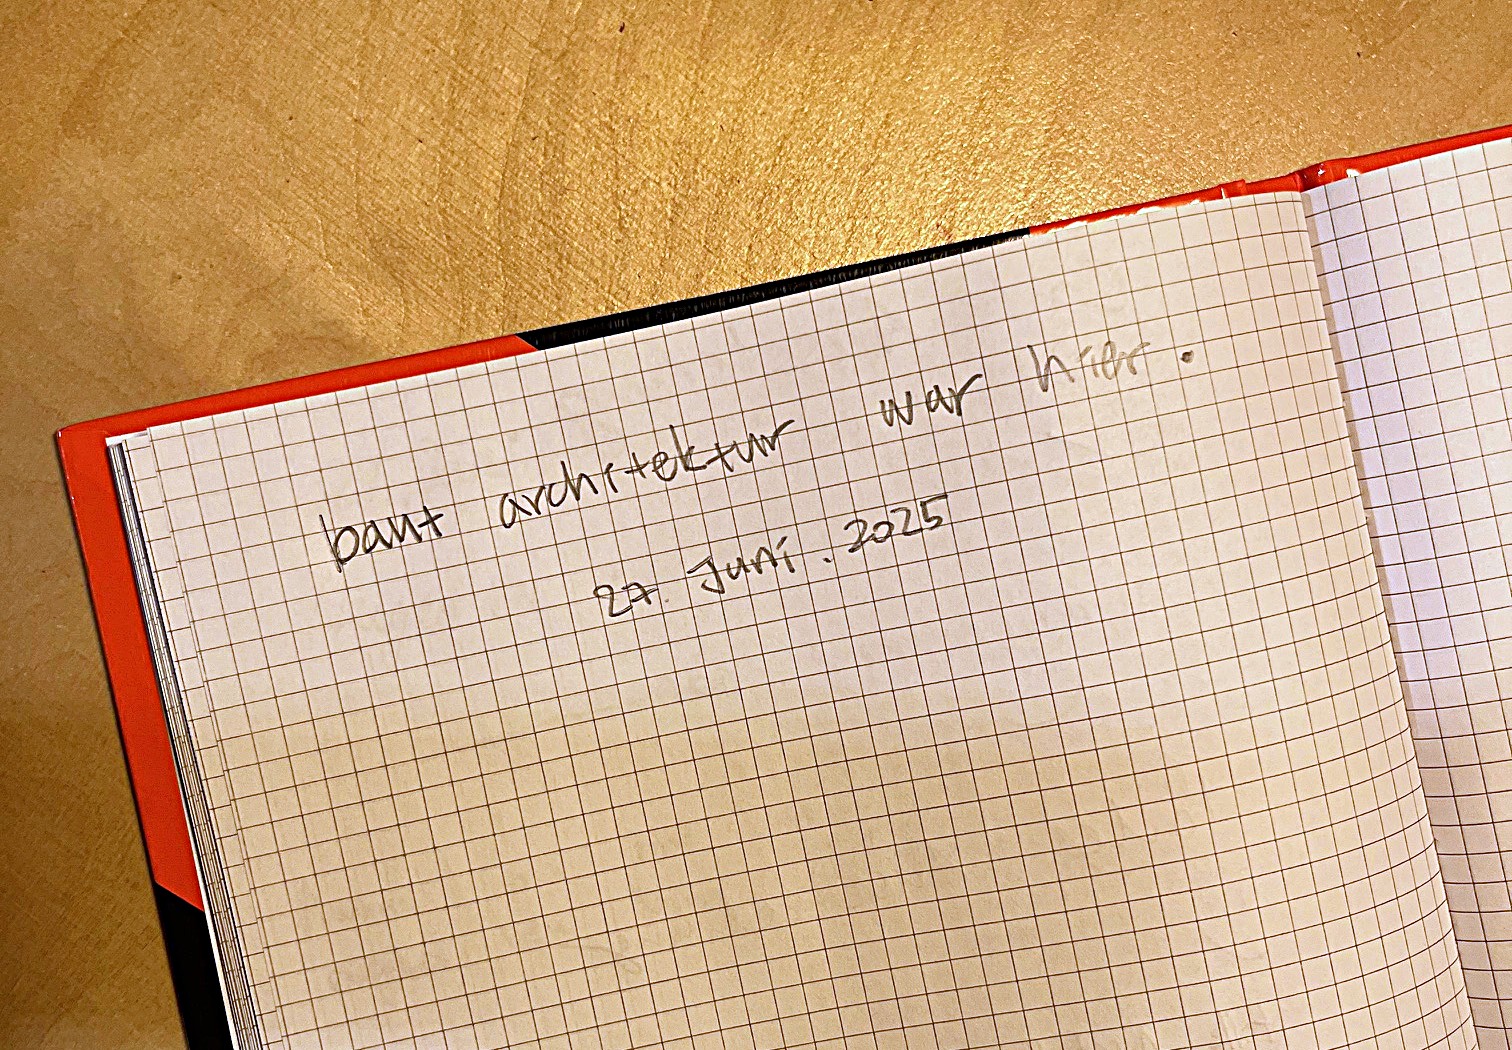 baut architektur war hier.
27. Juni. 2025